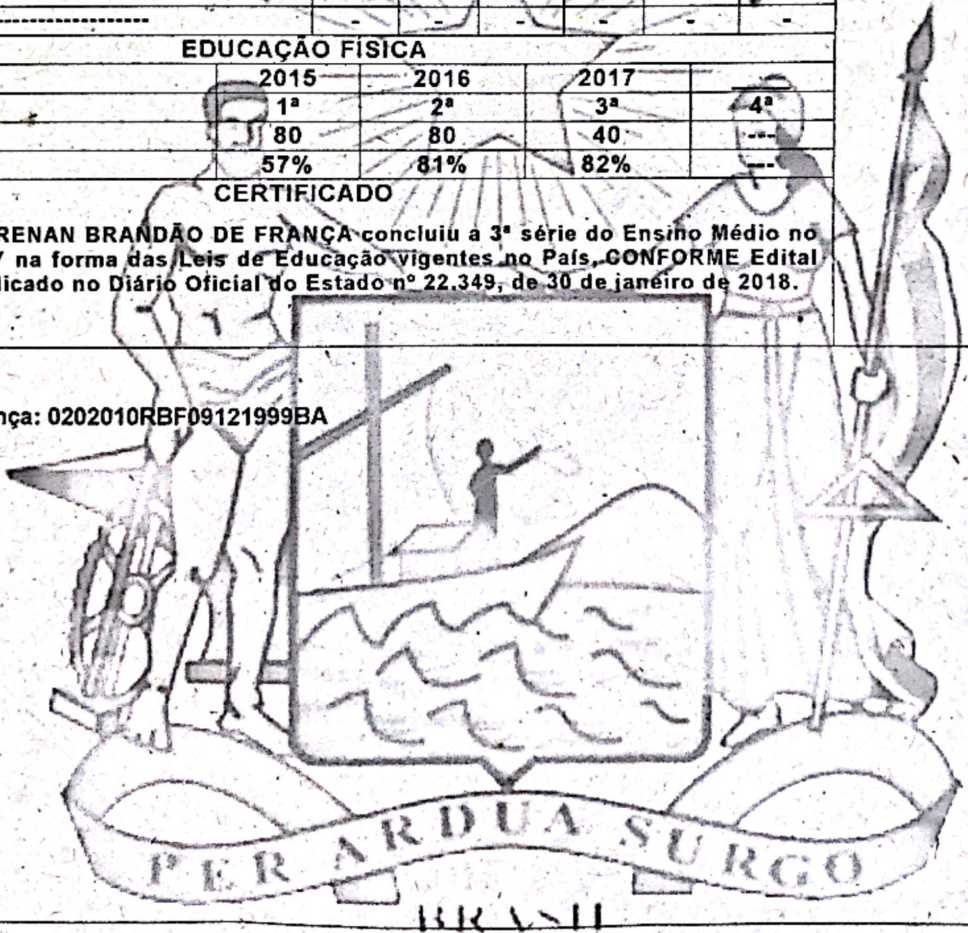 - - - - - -
EDUCAÇÃO FÍSICA
2015 2016 2017
1ª 2ª 3ª 4ª
80 80 40 ---
57% 81% 82% ---
CERTIFICADO
RENAN BRANDÃO DE FRANÇA concluiu a 3ª série do Ensino Médio no
na forma das Leis de Educação vigentes no País, CONFORME Edital
licado no Diário Oficial do Estado nº 22.349, de 30 de janeiro de 2018.
nça: 0202010RBF09121999BA
PER ARDUA SURGO
BRASIL